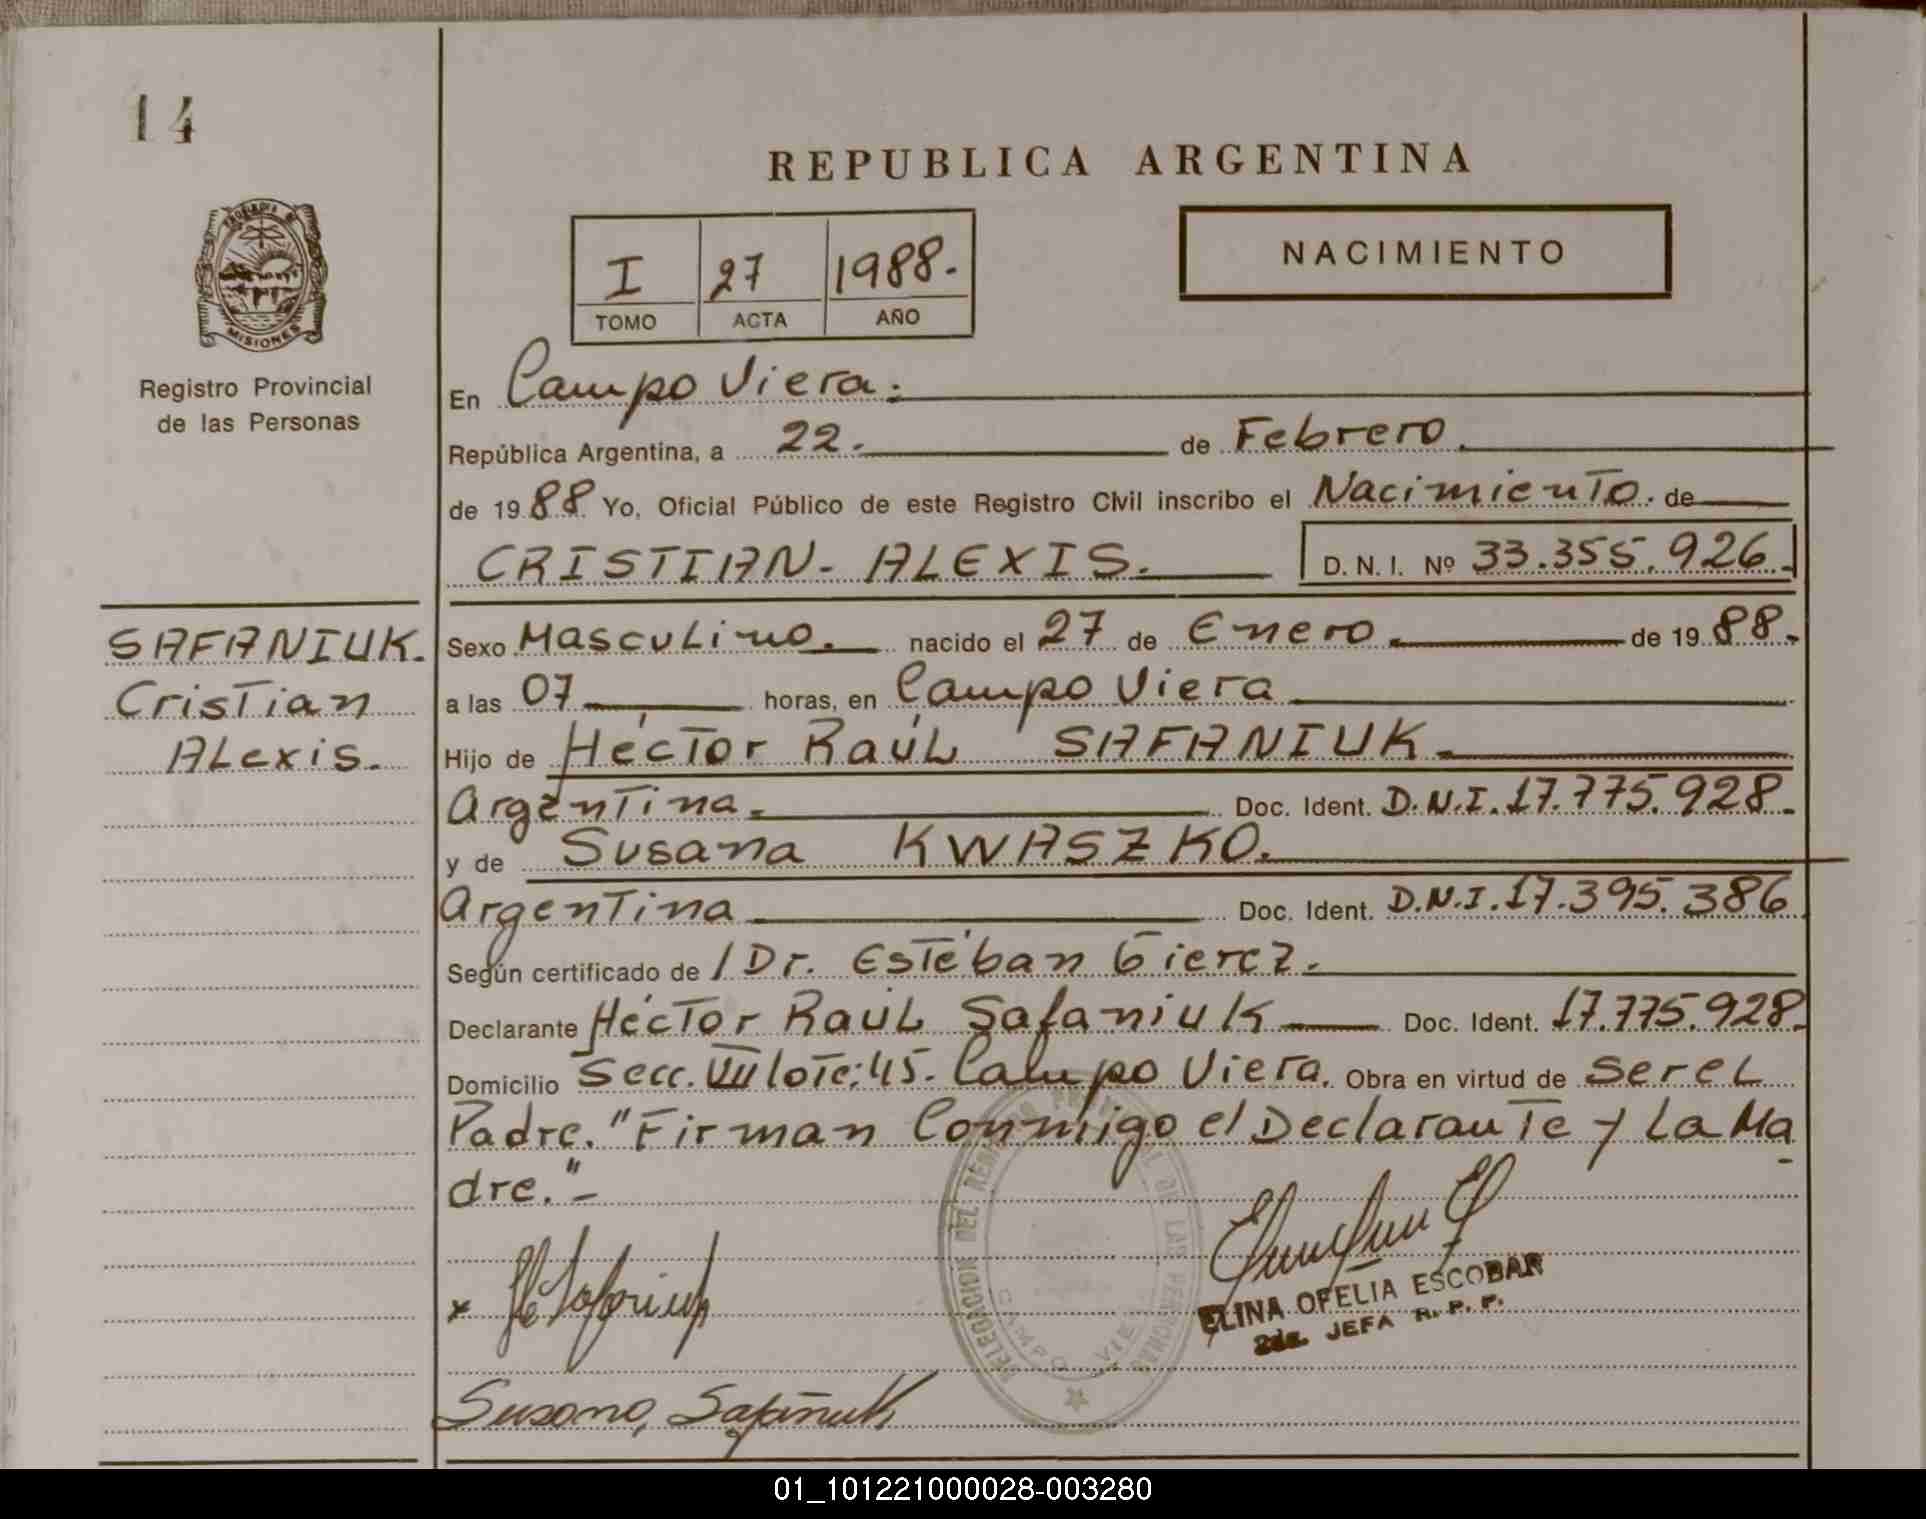 14
REPUBLICA ARGENTINA
PROVINCIA DE
MISIONES
Registro Provincial
de las Personas
I 27 1988.
TOMO ACTA AÑO
NACIMIENTO
En Campo Viera.
República Argentina, a 22. de Febrero.
de 1988 Yo, Oficial Público de este Registro Civil inscribo el Nacimiento. de
CRISTIAN- ALEXIS. D. N. I. Nº 33.355.926.
SAFANIUK.
Cristian
ALexis.
Sexo MascuLino. nacido el 27 de Enero. de 1988.
a las 07 horas, en Campo Viera
Hijo de Héctor RaúL SAFANIUK.
Argentina. Doc. Ident. D.N.I. 17.775.928.
y de Susana KWASZKO.
Argentina Doc. Ident. D.N.I. 17.395.386
Según certificado de / Dr. Estéban Gierez.
Declarante Héctor RaúL Safaniuk Doc. Ident. 17.775.928.
Domicilio Secc. VII lote: 45. Campo Viera. Obra en virtud de serel
Padre. "Firman Conmigo el Declarante y La Ma
dre."-
DELEGACION DEL REGISTRO PROVINCIAL DE LAS PERSONAS
CAMPO VIERA
ELINA OFELIA ESCOBAR
2da. JEFA R. P. P.
x H Safaniuk
Susana Safaniuk
01_101221000028-003280